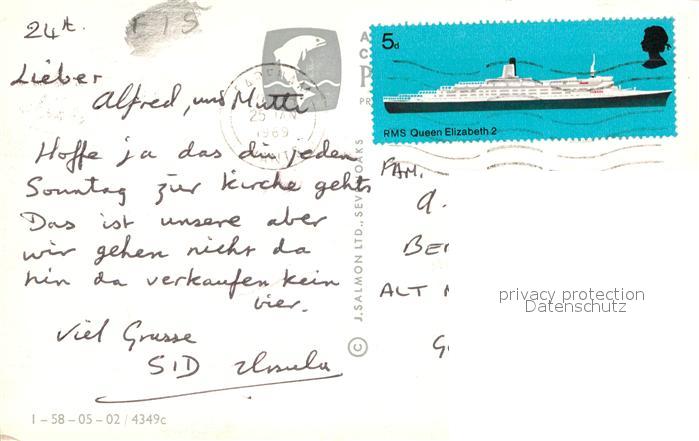 24th.
FIS
Lieber
Alfred, und Mutti
Hoffe ja das du jeden
Sonntag zur Kirche gehts
Das ist unsere aber
wir gehen nicht da
hin da verkaufen kein
vier.
Viel Grusse
SID Ursula
1 – 58 – 05 – 02 / 4349c
© J. SALMON LTD., SEVENOAKS
25 JAN
1969
5d
RMS Queen Elizabeth 2
FAM.
a.
BE
ALT
G
privacy protection
Datenschutz